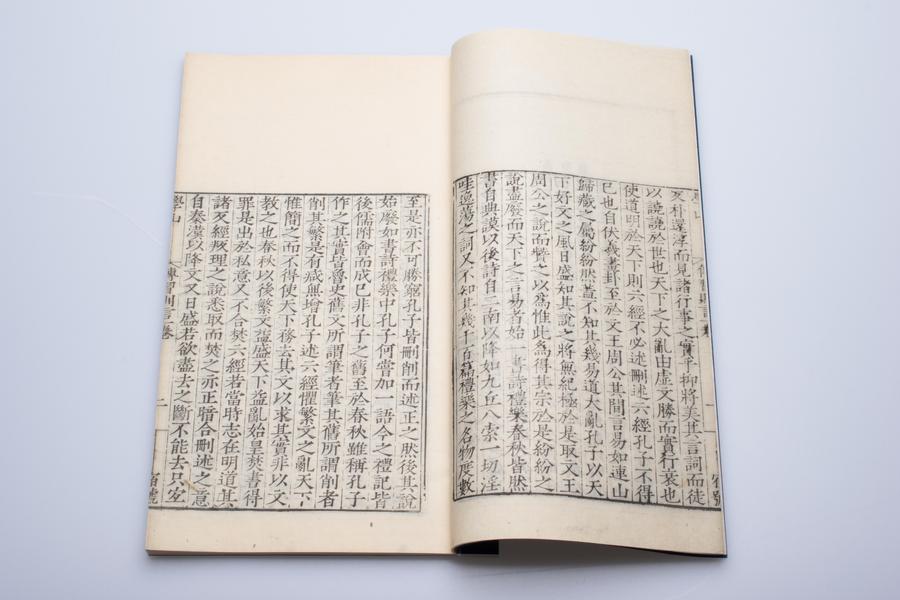 反朴還淳而見諸行事之實乎抑將美其言詞而徒
以譊譊於世也天下之大亂由虛文勝而實行衰也
使道明於天下則六經不必述刪述六經孔子不得
已也自伏羲畫卦至於文王周公其間言易如連山
歸藏之屬紛紛然蓋不知其幾易道大亂孔子以天
下好文之風日盛知其說之將無紀極於是取文王
周公之說而贊之以為惟此為得其宗於是紛紛之
說盡廢而天下之言易者始一書詩禮樂春秋皆然
書自典謨以後詩自二南以降如九丘八索一切淫
哇逸蕩之詞又不知其幾千百篇禮樂之名物度數
至是亦不可勝窮孔子皆刪削而述正之然後其說
始廢如書詩禮樂中孔子何嘗加一語今之禮記皆
後儒附會而成已非孔子之舊至於春秋雖稱孔子
作之其實皆魯史舊文所謂筆者筆其舊所謂削者
削其繁是有減無增孔子述六經懼繁文之亂天下
惟簡之而不得使天下務去其文以求其實非以文
教之也春秋以後繁文益盛天下益亂始皇焚書得
罪是出於私意又不合焚六經若當時志在明道其
諸反經叛理之說悉取而焚之亦正暗合刪述之意
自秦漢以降文又日盛若欲盡去之斷不能去只宜
學山
傳習則言一卷
二
宿號